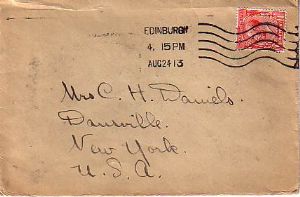 EDINBURGH
4. 15 PM
AUG 24 13
Mrs C. H. Daniels.
Dansville.
New York.
U. S. A.